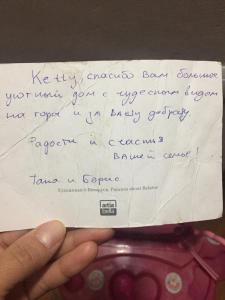 Ketty, спасибо Вам большое
уютный дом с чудесным видом
на горы и за Вашу доброту.
Радости и счастья
вашей семье!
Яна и Борис.
Художники о Беларуси. Painters about Belarus